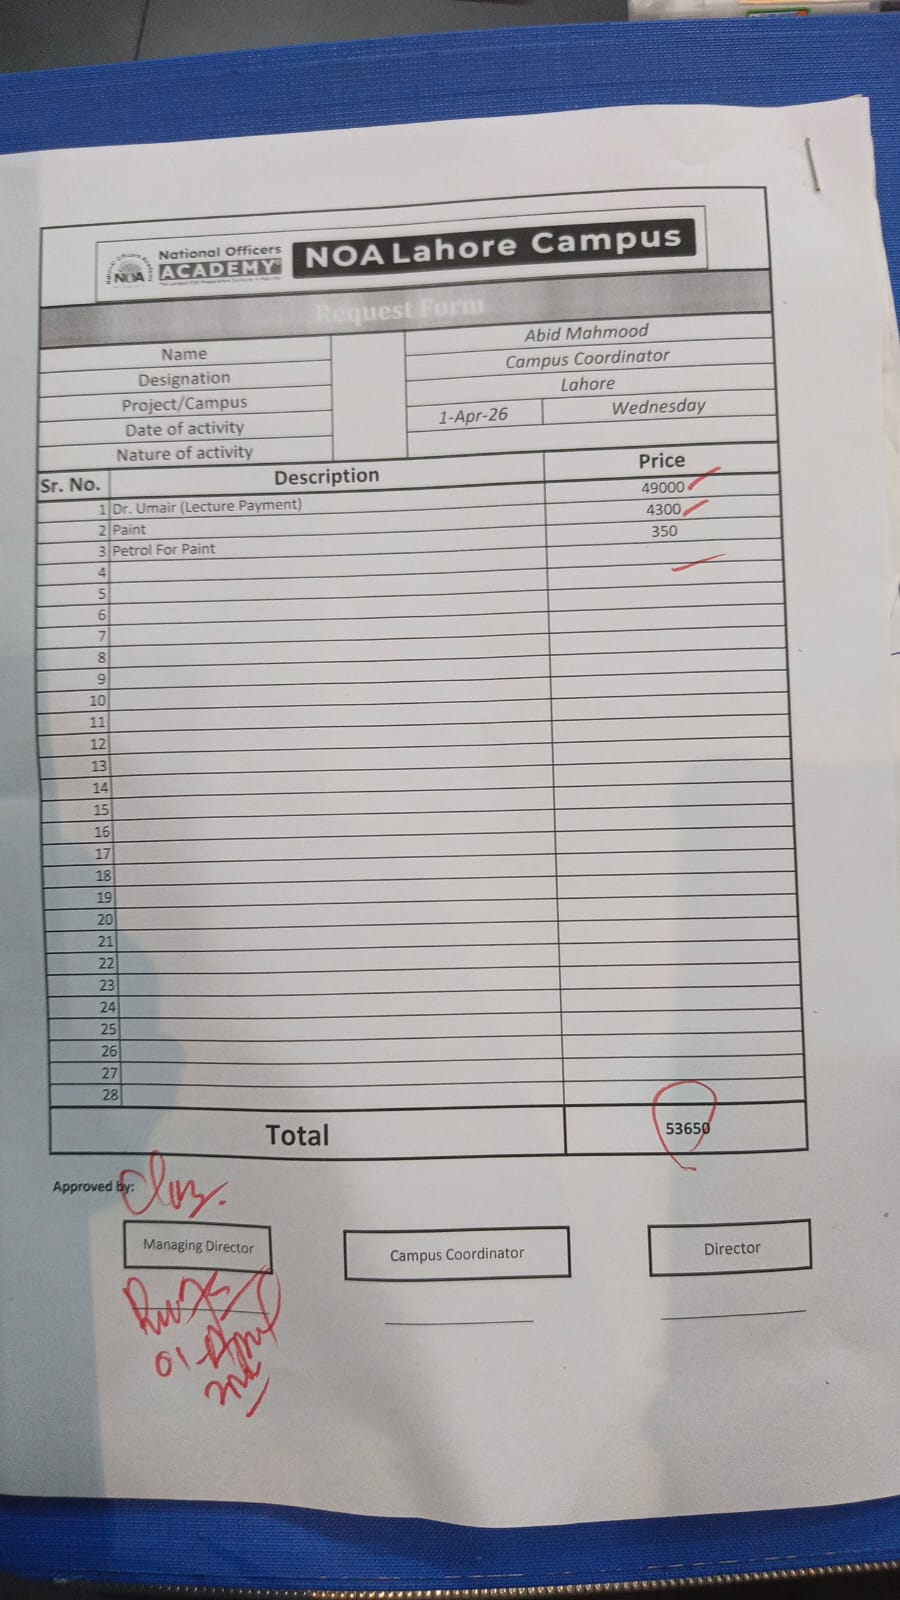 National Officers
ACADEMY
NOA
NOA Lahore Campus
Request Form
Name Abid Mahmood
Designation Campus Coordinator
Project/Campus Lahore
Date of activity 1-Apr-26 Wednesday
Nature of activity
Sr. No. Description Price
1 Dr. Umair (Lecture Payment) 49000
2 Paint 4300
3 Petrol For Paint 350
4
5
6
7
8
9
10
11
12
13
14
15
16
17
18
19
20
21
22
23
24
25
26
27
28
Total 53650
Approved by:
Managing Director Campus Coordinator Director
01 April